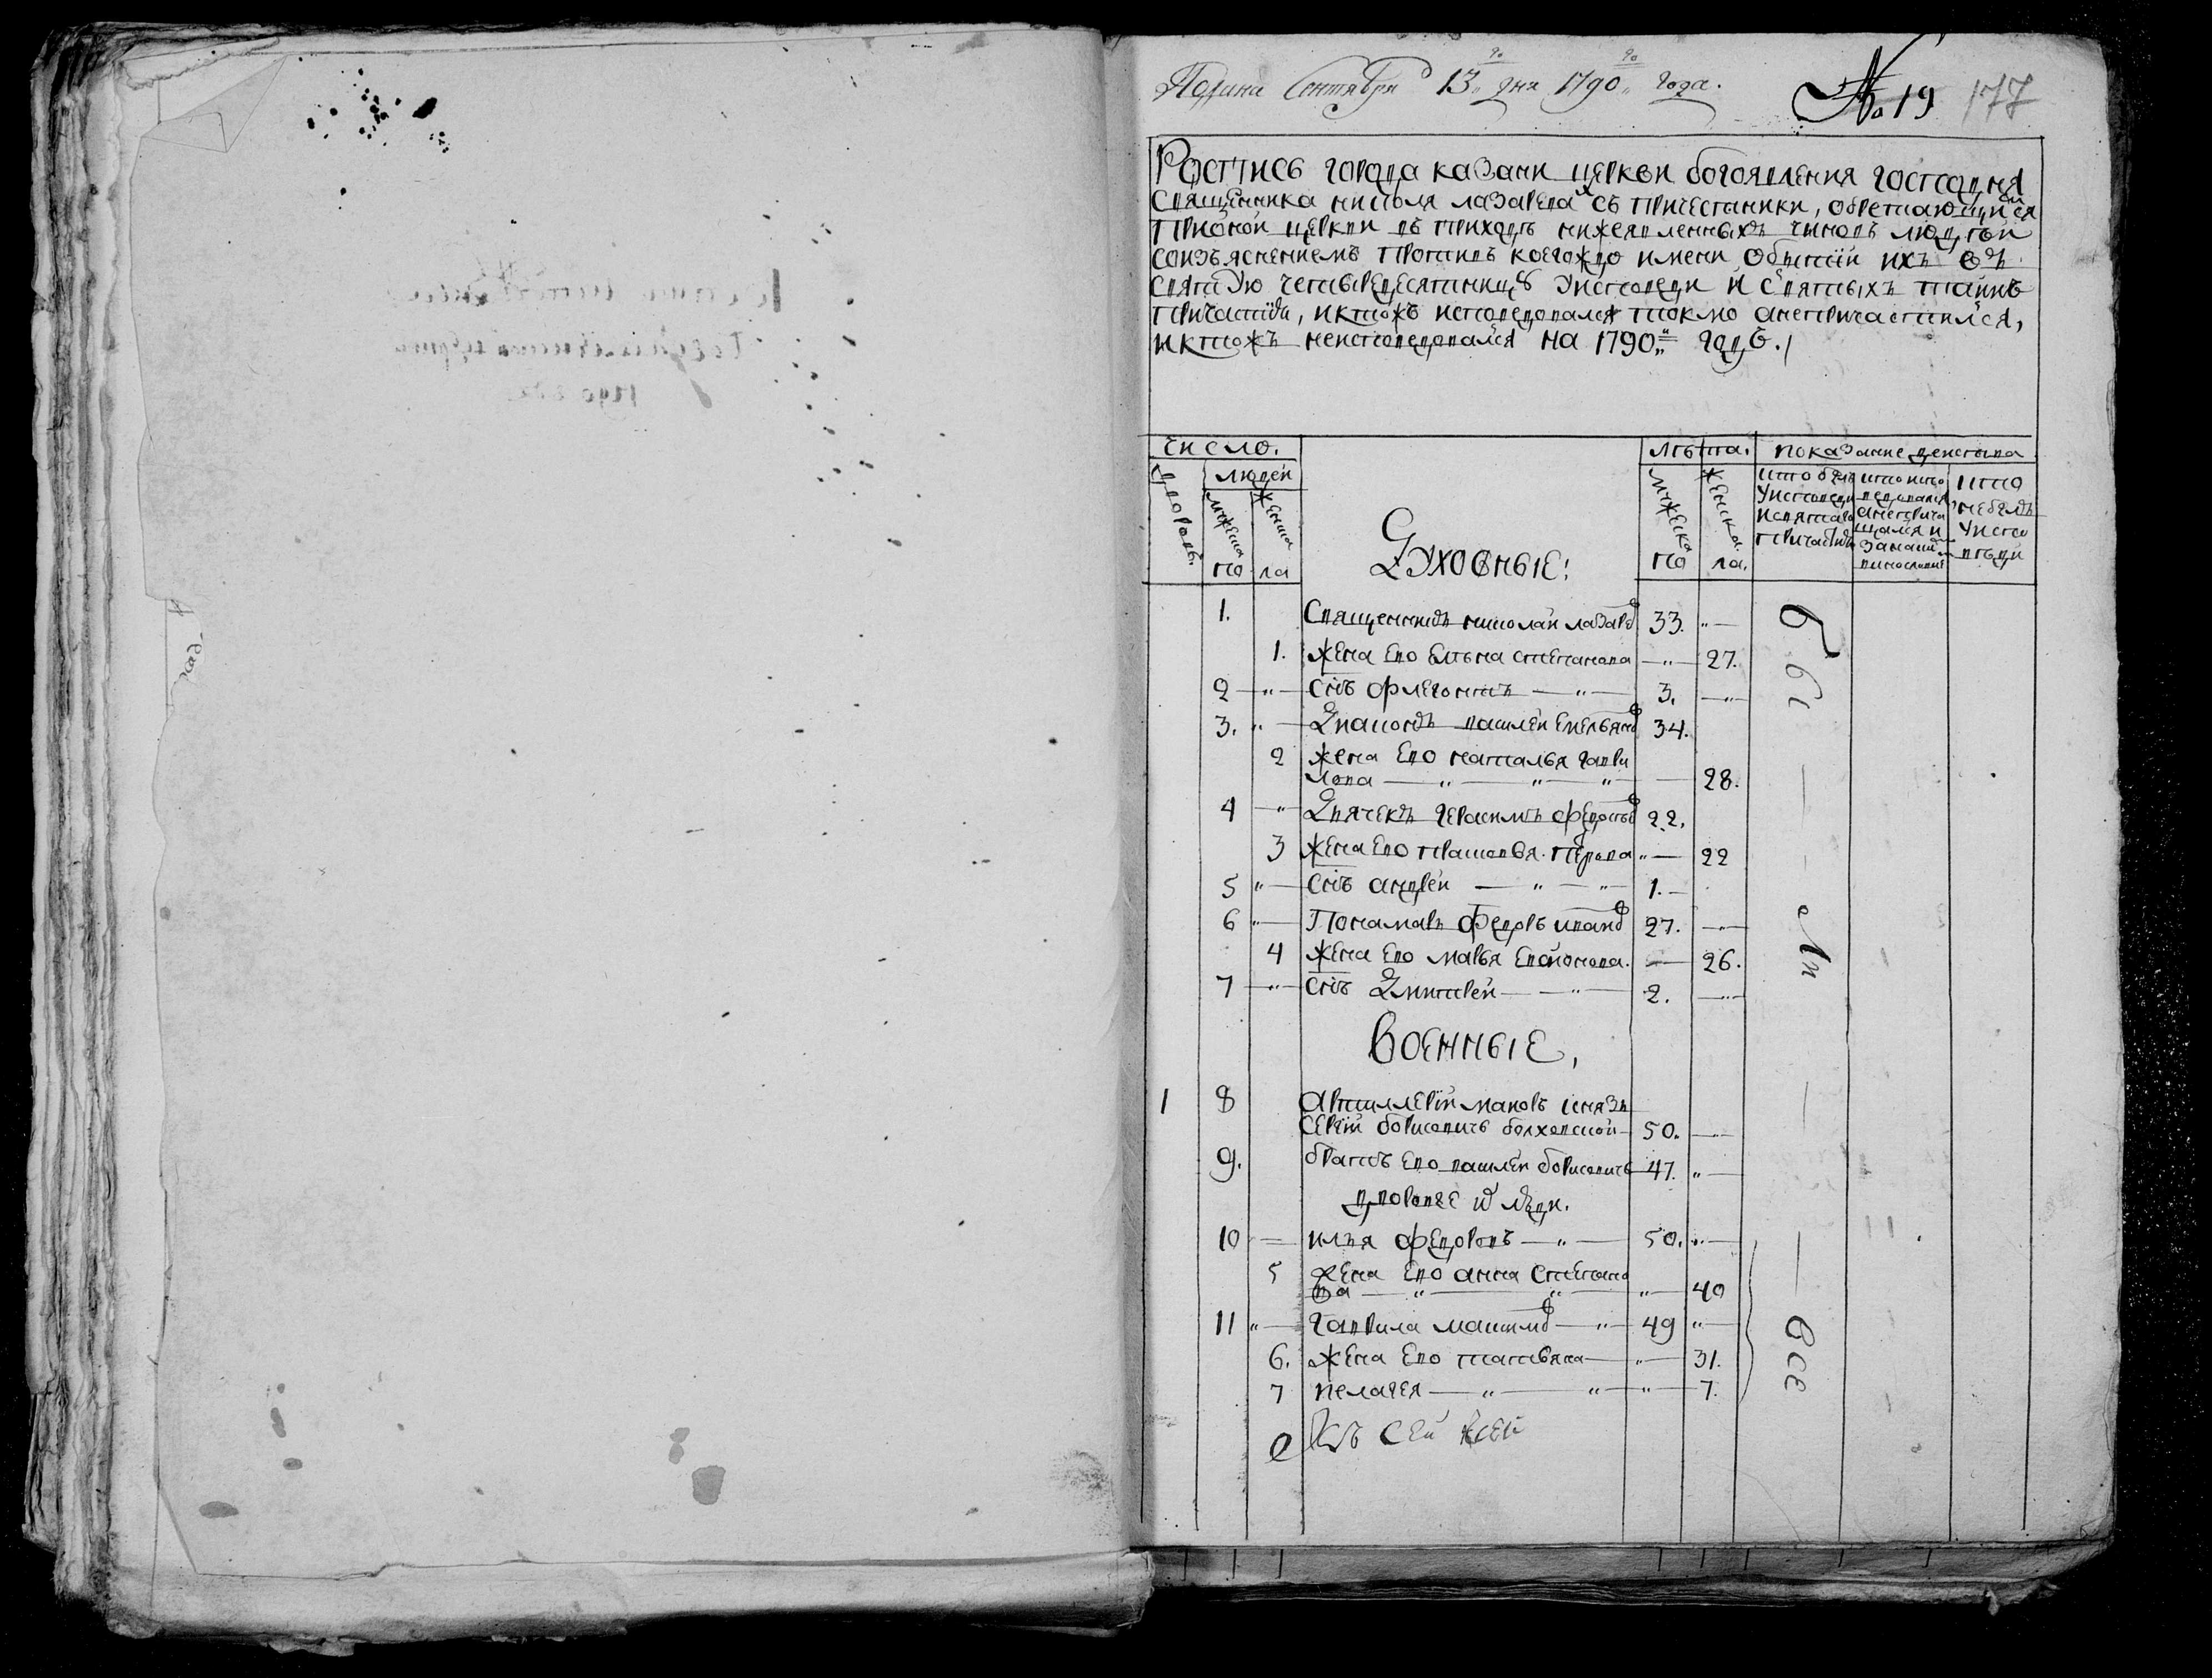 Подана Сентября 13го дня 1790го года.
№ 19 177
Роспись города казани церкви богоявления господня
священника николая лазарева съ причетники, обретающихся
при оной церкви въ приходъ нижеявленныхъ чиновъ людгъй
соизъяснениемъ противъ коегождо имени о бытїи ихъ въ
святую четыредесятницу уисповеди и святыхъ таинъ
причастїя, иктожъ исповедовался токмо анепричастился,
иктожъ неисповедовался на 1790й годъ.
число.
лѣта.
показание действа
дворовъ.
людей
мужеска
женска
по
ла
Духовные:
мужеска
женска
по
ла.
кто былъ
уисповеди
исвятаго
причастїя
кто испо
ведовался
анеприча
щался и
закаким
винословиемъ
кто
небылъ
уиспо
вѣди
1. Священникъ николай лазаревъ 33. „—
1. жена Его Елѣна степанова —„— 27.
2 —„— сн҃ъ флегонтъ —„— 3. —„—
3. „— Диаконъ василей Емельяновъ 34.
2 жена Его наталья гаври
лова —„—„—„— — 28.
4 —„ Дьячекъ герасимъ федотовъ 22.
3 жена Его прасковья петрова „— 22
5 „— сн҃ъ андрей —„—„— 1.—
6 „— Понамарь федоръ ивановъ 27. —„—
4 жена Его марья Ефимова. — 26.
7 —„— сн҃ъ Дмитрей —„— 2. —„—
были
Военные,
1 8 Артиллерїи маиоръ князь
сергїй борисовичъ болховской 50. —„—
9. братъ Его василей борисовичъ 47. „—
дворовые их люди.
10 — илья федоровъ —„— 50. „—
5 жена Его анна Степано
ва —„—„— „— 40
11 „— гаврила максимовъ —„— 49 „—
6. жена Его татьяна —„— 31.
7 пелагея —„—„—„— 7.
все
Къ сей